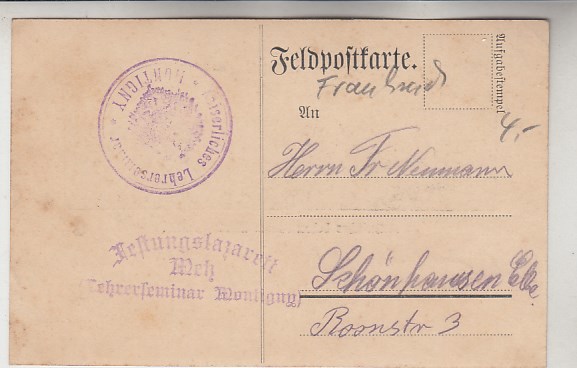 Feldpostkarte.
Aufgabestempel
An
4.-
Herrn Fr Neumann
Schönhausen Elbe
Roonstr 3
Kaiserliches Lehrerseminar * MONTIGNY *
Festungslazarett
Metz
(Lehrerseminar Montigny)